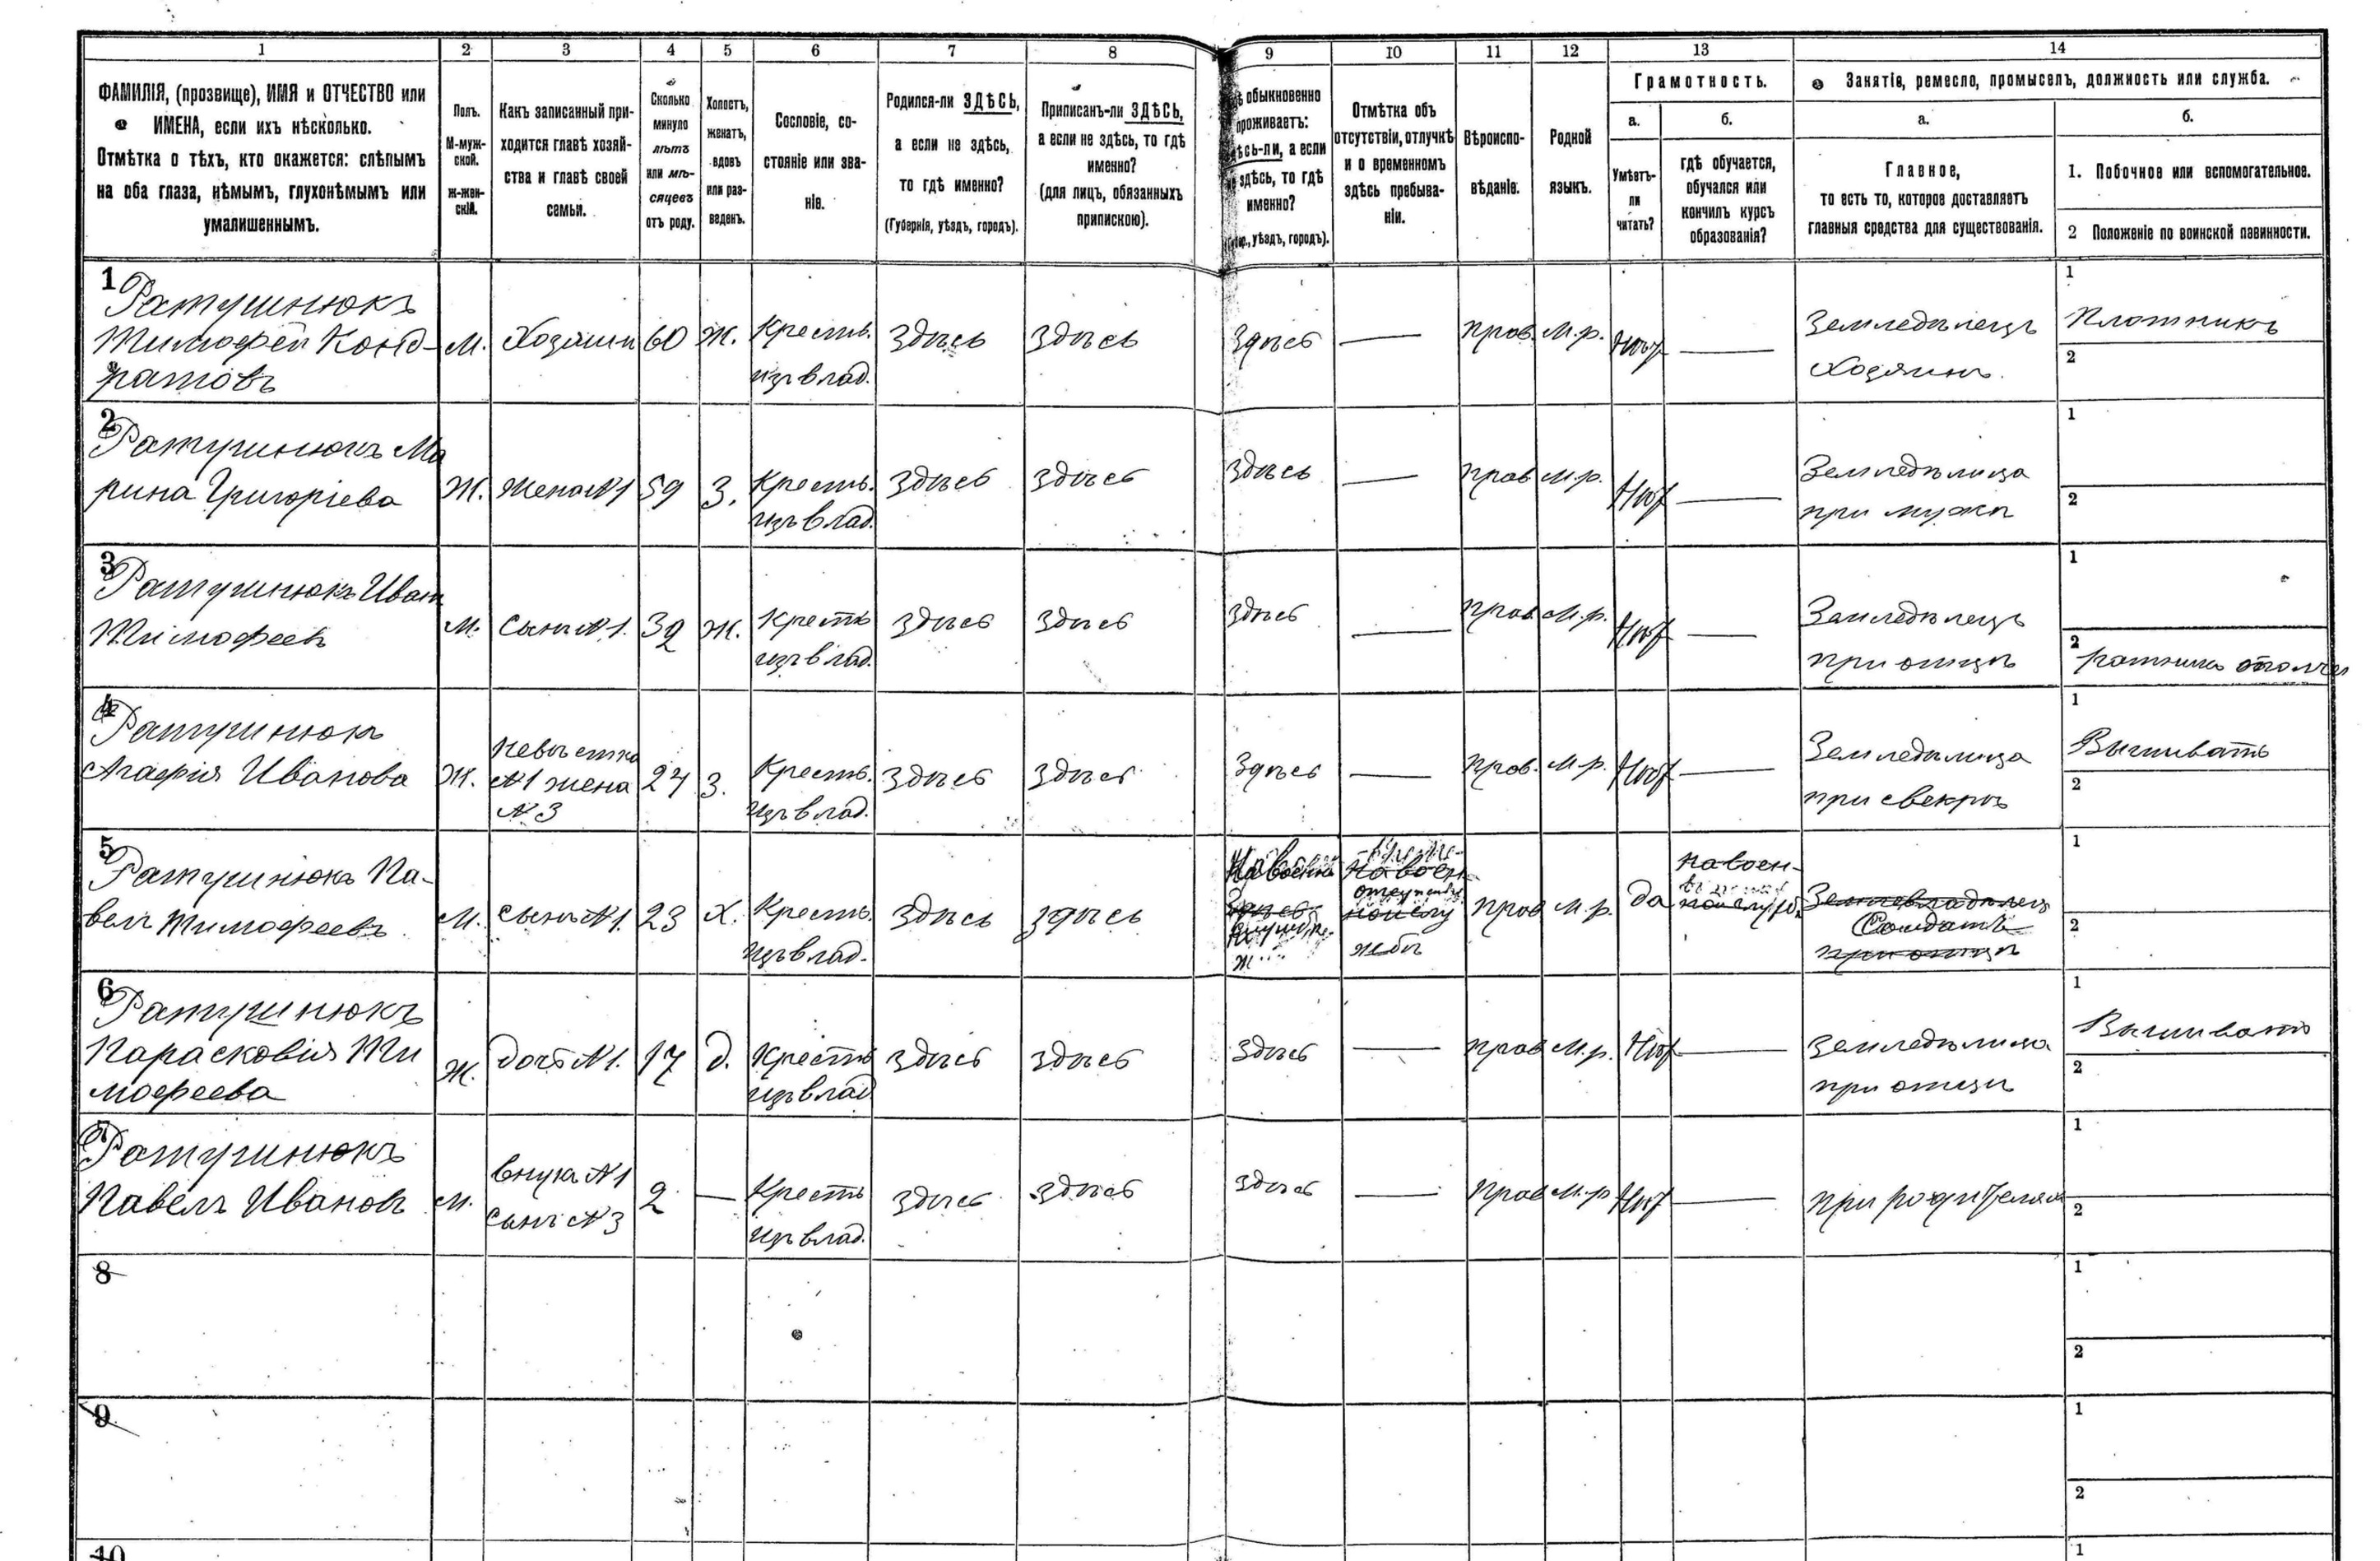 1 2 3 4 5 6 7 8 9 10 11 12 13 14
ФАМИЛІЯ, (прозвище), ИМЯ и ОТЧЕСТВО или
ИМЕНА, если ихъ нѣсколько.
Отмѣтка о тѣхъ, кто окажется: слѣпымъ
на оба глаза, нѣмымъ, глухонѣмымъ или
умалишеннымъ.
Полъ.
М-муж-
ской.
ж-жен-
скій.
Какъ записанный при-
ходится главѣ хозяй-
ства и главѣ своей
семьи.
Сколько
минуло
лѣтъ
или мѣ-
сяцевъ
отъ роду.
Холостъ,
женатъ,
вдовъ
или раз-
веденъ.
Сословіе, со-
стояніе или зва-
ніе.
Родился-ли ЗДѢСЬ,
а если не здѣсь,
то гдѣ именно?
(Губернія, уѣздъ, городъ).
Приписанъ-ли ЗДѢСЬ,
а если не здѣсь, то гдѣ
именно?
(для лицъ, обязанныхъ
припискою).
обыкновенно
проживаетъ:
а если
здѣсь, то гдѣ
именно?
уѣздъ, городъ).
Отмѣтка объ
отсутствіи, отлучкѣ
и о временномъ
здѣсь пребыва-
ніи.
Вѣроиспо-
вѣданіе.
Родной
языкъ.
Грамотность.
а.
Умѣетъ-
ли
читать?
б.
гдѣ обучается,
обучался или
кончилъ курсъ
образованія?
Занятіе, ремесло, промыселъ, должность или служба.
а.
Главное,
то есть то, которое доставляетъ
главныя средства для существованія.
б.
1. Побочное или вспомогательное.
2 Положеніе по воинской повинности.
1
Ратушнюкъ
Тимофей Конд-
ратовъ
М.
Хозяинъ
60
Ж.
Кресть.
изъ влад.
здѣсь
здѣсь
здѣсь
—
прав.
м.р.
нѣт
—
Земледѣлецъ
Хозяинъ.
1
Плотникъ
2
2
Ратушнюкъ Ма
рина Григоріева
Ж.
Жена №1
59
З.
Кресть.
изъ влад.
здѣсь
здѣсь
здѣсь
—
прав
м.р.
нѣт
—
Земледѣлица
при мужѣ
1
2
3
Ратушнюкъ Иван
Тимофеевъ
М.
Сынъ №1.
32
Ж.
Кресть
изъ влад.
здѣсь
здѣсь
здѣсь
—
прав.
м.р.
нѣт
—
Земледѣлецъ
при отцѣ
1
2
ратникъ ополчен
4
Ратушнюкъ
Агафія Иванова
Ж.
Невѣстка
№1 жена
№3
24
З.
Кресть.
изъ влад.
здѣсь
здѣсь
здѣсь
—
прав.
м.р.
нѣт
—
Земледѣлица
при свекрѣ
1
Вышивать
2
5
Ратушнюкъ Па-
велъ Тимофеевъ
М.
Сынъ №1.
23
Х.
Кресть.
изъ влад.
здѣсь
здѣсь
здѣсь
на воен
жбѣ
прав
м.р.
да
на воен-
Солдатъ
при отцѣ
1
2
6
Ратушнюкъ
Парасковія Ти
мофеева
Ж.
дочь №1.
17
д.
Кресть
изъ влад
здѣсь
здѣсь
здѣсь
—
прав
м.р.
нѣт
—
земледѣлица
при отцѣ
1
Вышивать
2
7
Ратушнюкъ
Павелъ Ивановъ
М.
внукъ №1
Сынъ №3
2
—
Кресть
изъ влад.
здѣсь
здѣсь
здѣсь
—
прав
м.р
нѣт
—
при родителях
1
2
8
1
2
9
1
2
10
1